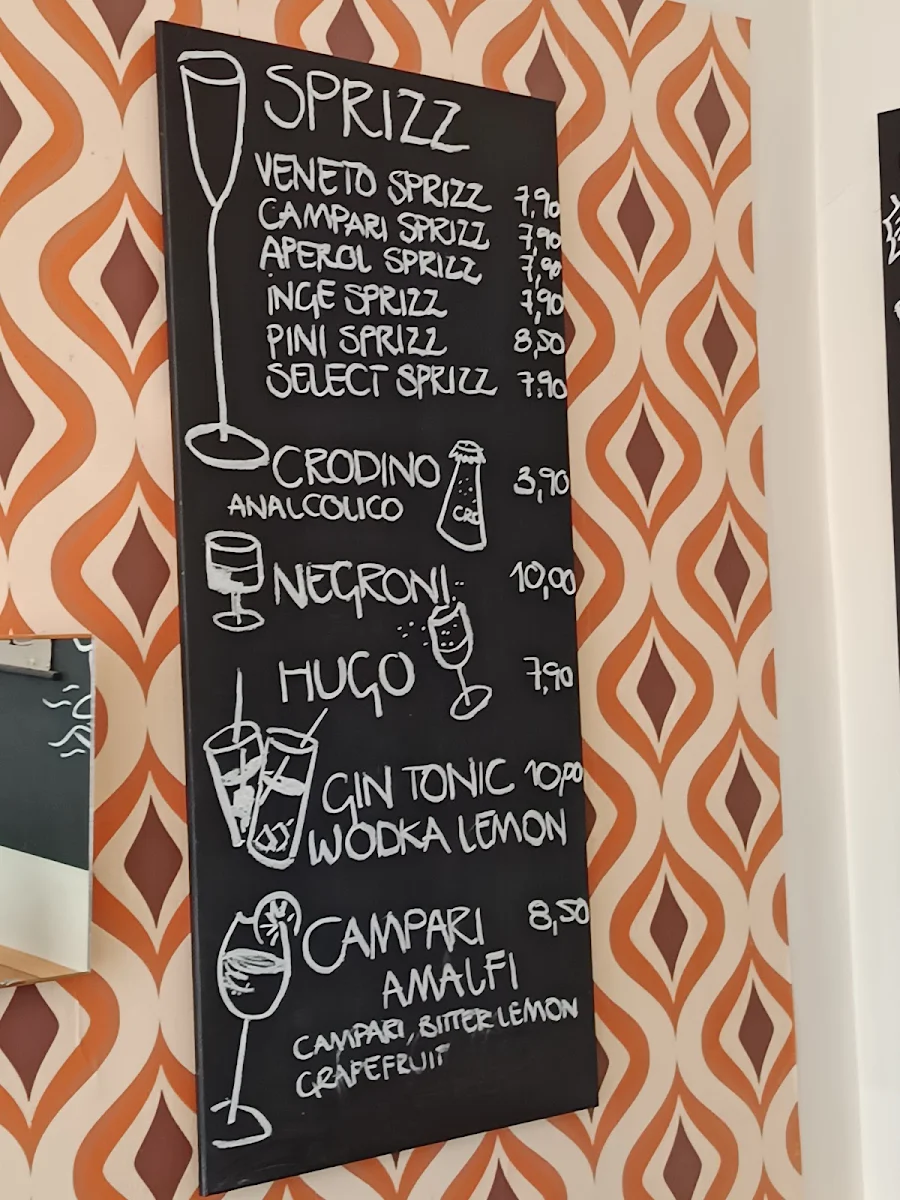 SPRIZZ
VENETO SPRIZZ 7,90
CAMPARI SPRIZZ 7,90
APEROL SPRIZZ 7,90
INGE SPRIZZ 7,90
PINI SPRIZZ 8,50
SELECT SPRIZZ 7,90
CRODINO 3,90
ANALCOLICO
CRO
NEGRONI 10,00
HUGO 7,90
GIN TONIC 10,00
WODKA LEMON
CAMPARI 8,50
AMALFI
CAMPARI, BITTER LEMON
GRAPEFRUIT